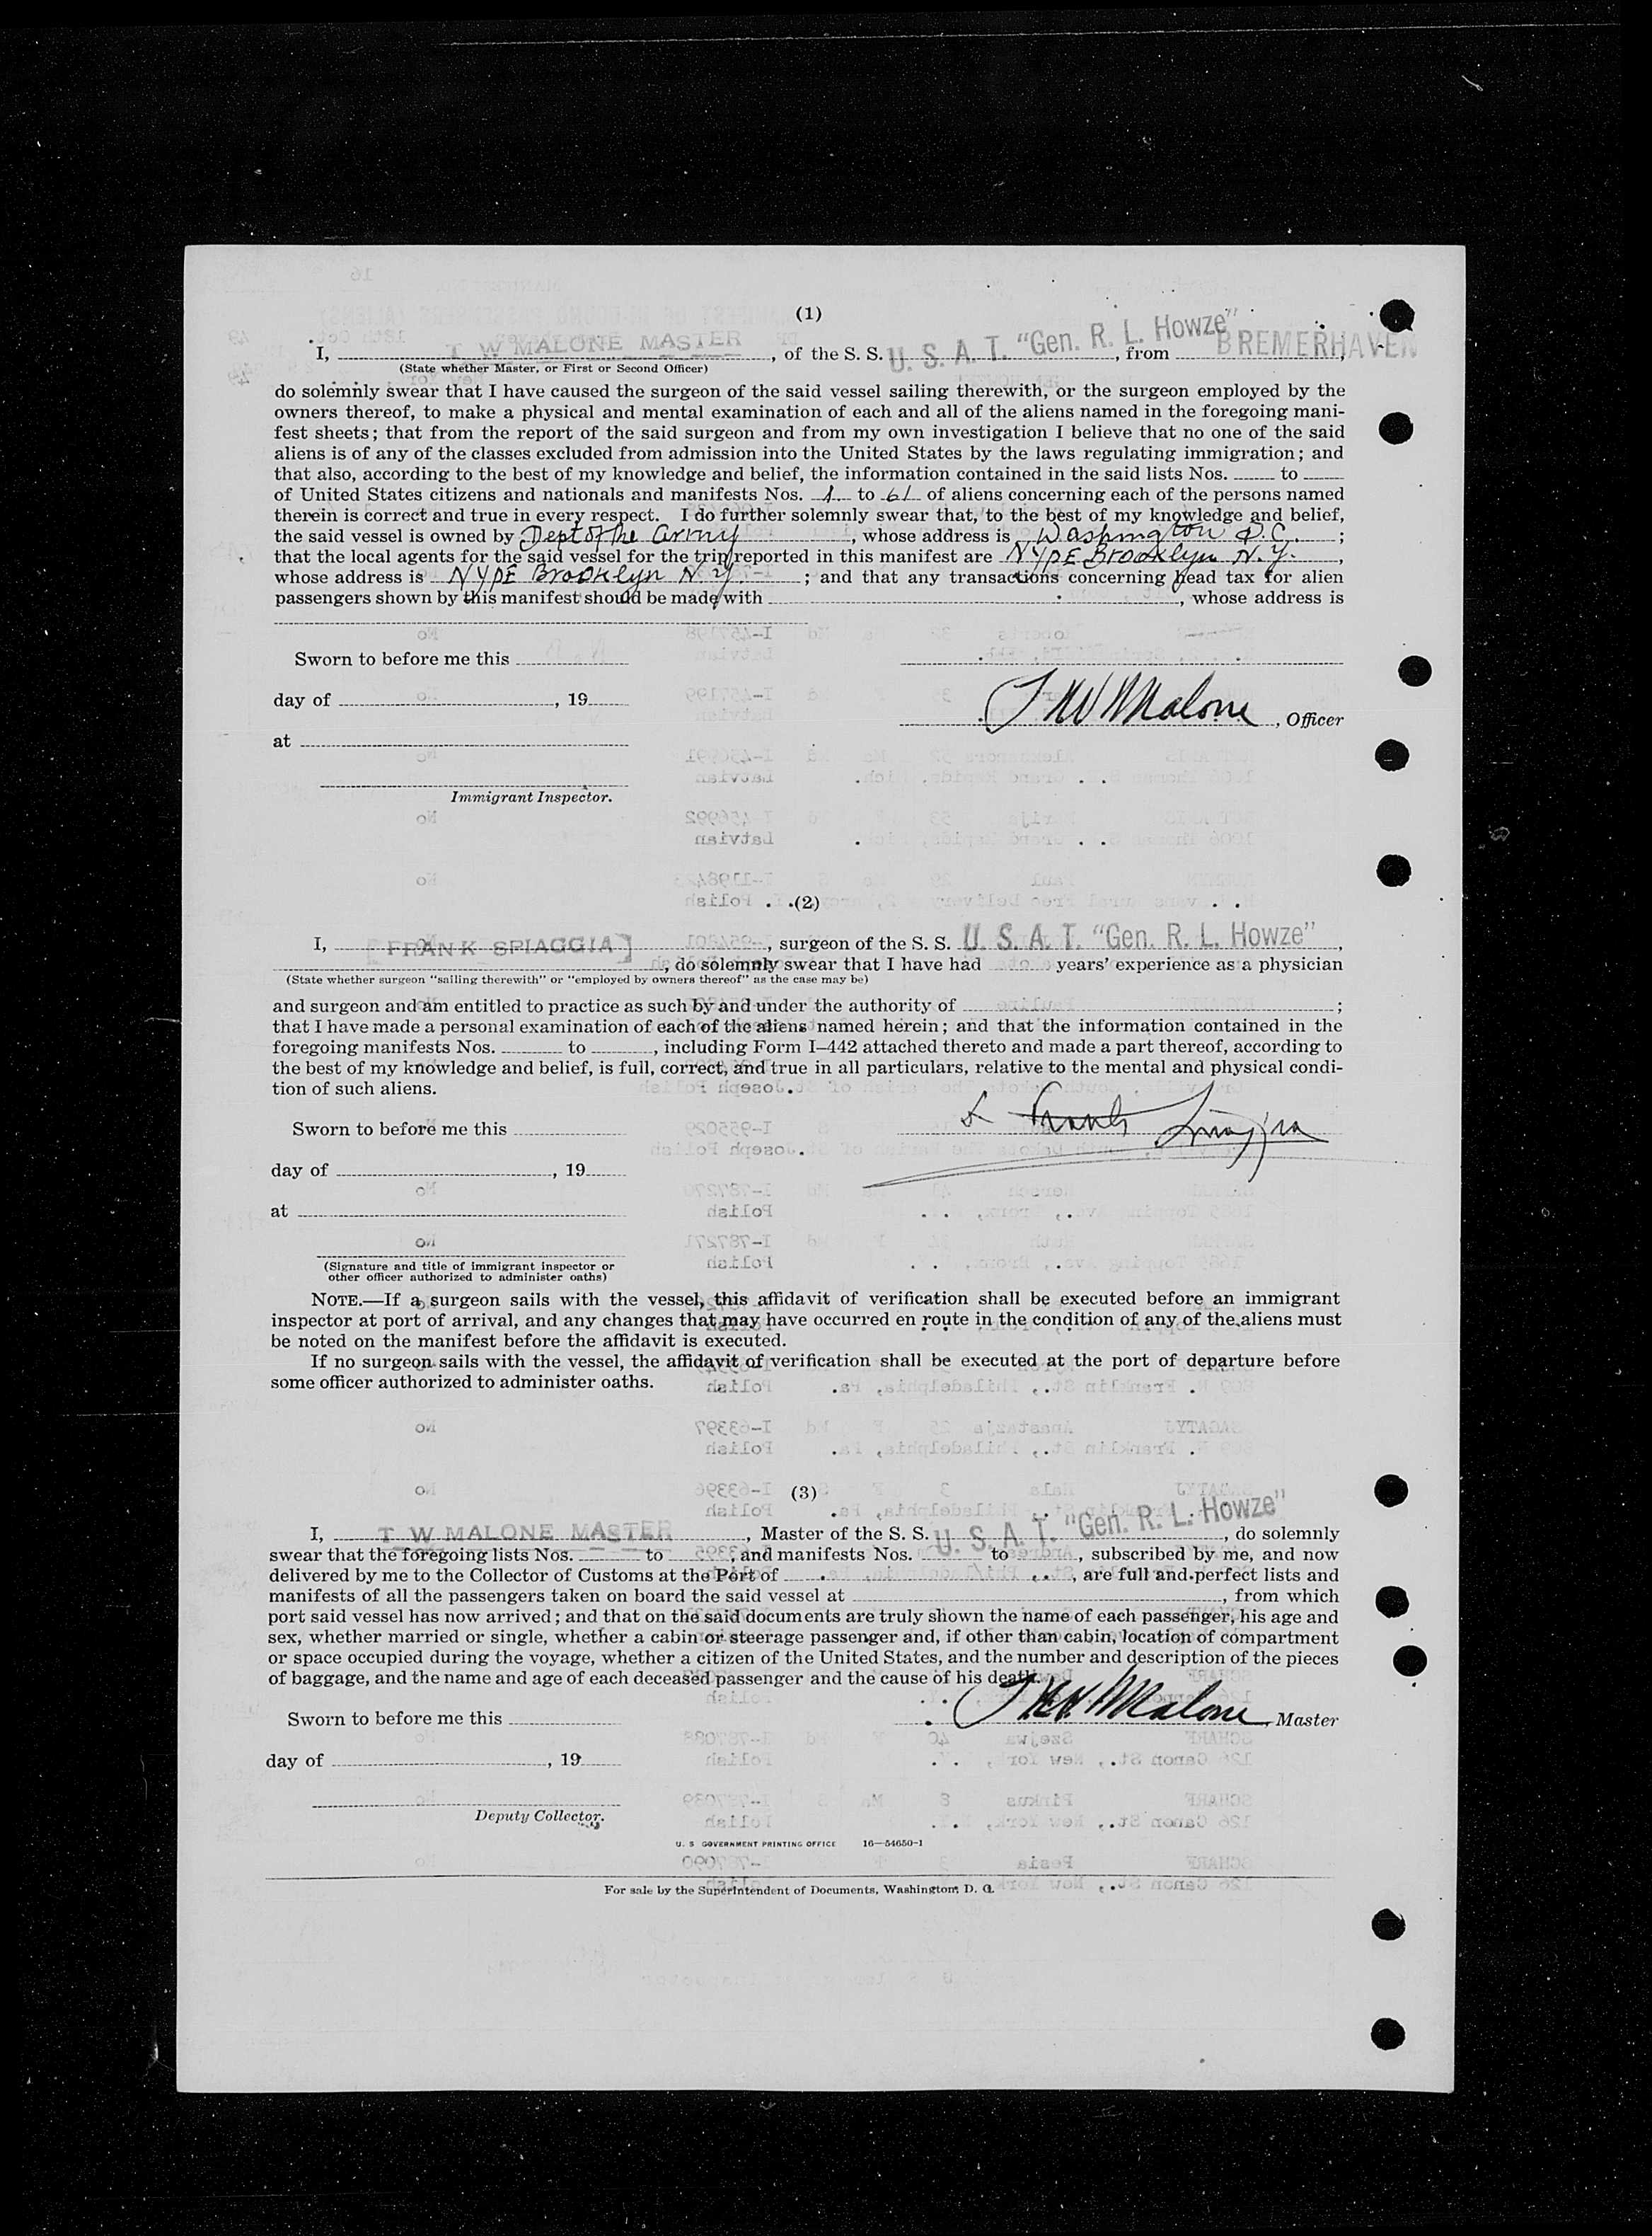 (1)
I, T W MALONE MASTER, of the S. S. U. S. A. T. "Gen. R. L. Howze", from BREMERHAVEN,
(State whether Master, or First or Second Officer)
do solemnly swear that I have caused the surgeon of the said vessel sailing therewith, or the surgeon employed by the
owners thereof, to make a physical and mental examination of each and all of the aliens named in the foregoing mani-
fest sheets; that from the report of the said surgeon and from my own investigation I believe that no one of the said
aliens is of any of the classes excluded from admission into the United States by the laws regulating immigration; and
that also, according to the best of my knowledge and belief, the information contained in the said lists Nos. to
of United States citizens and nationals and manifests Nos. 1 to 61 of aliens concerning each of the persons named
therein is correct and true in every respect. I do further solemnly swear that, to the best of my knowledge and belief,
the said vessel is owned by Dept of the Army, whose address is Washington D.C.;
that the local agents for the said vessel for the trip reported in this manifest are NYPE Brooklyn N.Y.,
whose address is NYPE Brooklyn N.Y; and that any transactions concerning head tax for alien
passengers shown by this manifest should be made with , whose address is
Sworn to before me this
day of , 19
T W Malone, Officer
at
Immigrant Inspector.
(2)
I, [FRANK SPIAGGIA], surgeon of the S. S. U. S. A. T. "Gen. R. L. Howze",
, do solemnly swear that I have had years' experience as a physician
(State whether surgeon "sailing therewith" or "employed by owners thereof" as the case may be)
and surgeon and am entitled to practice as such by and under the authority of ;
that I have made a personal examination of each of the aliens named herein; and that the information contained in the
foregoing manifests Nos. to , including Form I–442 attached thereto and made a part thereof, according to
the best of my knowledge and belief, is full, correct, and true in all particulars, relative to the mental and physical condi-
tion of such aliens.
Sworn to before me this
Frank Spiaggia
day of , 19
at
(Signature and title of immigrant inspector or
other officer authorized to administer oaths)
NOTE.—If a surgeon sails with the vessel, this affidavit of verification shall be executed before an immigrant
inspector at port of arrival, and any changes that may have occurred en route in the condition of any of the aliens must
be noted on the manifest before the affidavit is executed.
If no surgeon sails with the vessel, the affidavit of verification shall be executed at the port of departure before
some officer authorized to administer oaths.
(3)
I, T W MALONE MASTER, Master of the S. S. U. S. A. T. "Gen. R. L. Howze", do solemnly
swear that the foregoing lists Nos. to , and manifests Nos. to , subscribed by me, and now
delivered by me to the Collector of Customs at the Port of , are full and perfect lists and
manifests of all the passengers taken on board the said vessel at , from which
port said vessel has now arrived; and that on the said documents are truly shown the name of each passenger, his age and
sex, whether married or single, whether a cabin or steerage passenger and, if other than cabin, location of compartment
or space occupied during the voyage, whether a citizen of the United States, and the number and description of the pieces
of baggage, and the name and age of each deceased passenger and the cause of his death.
Sworn to before me this
T W Malone, Master
day of , 19
Deputy Collector.
U. S. GOVERNMENT PRINTING OFFICE 16—54650-1
For sale by the Superintendent of Documents, Washington, D. C.